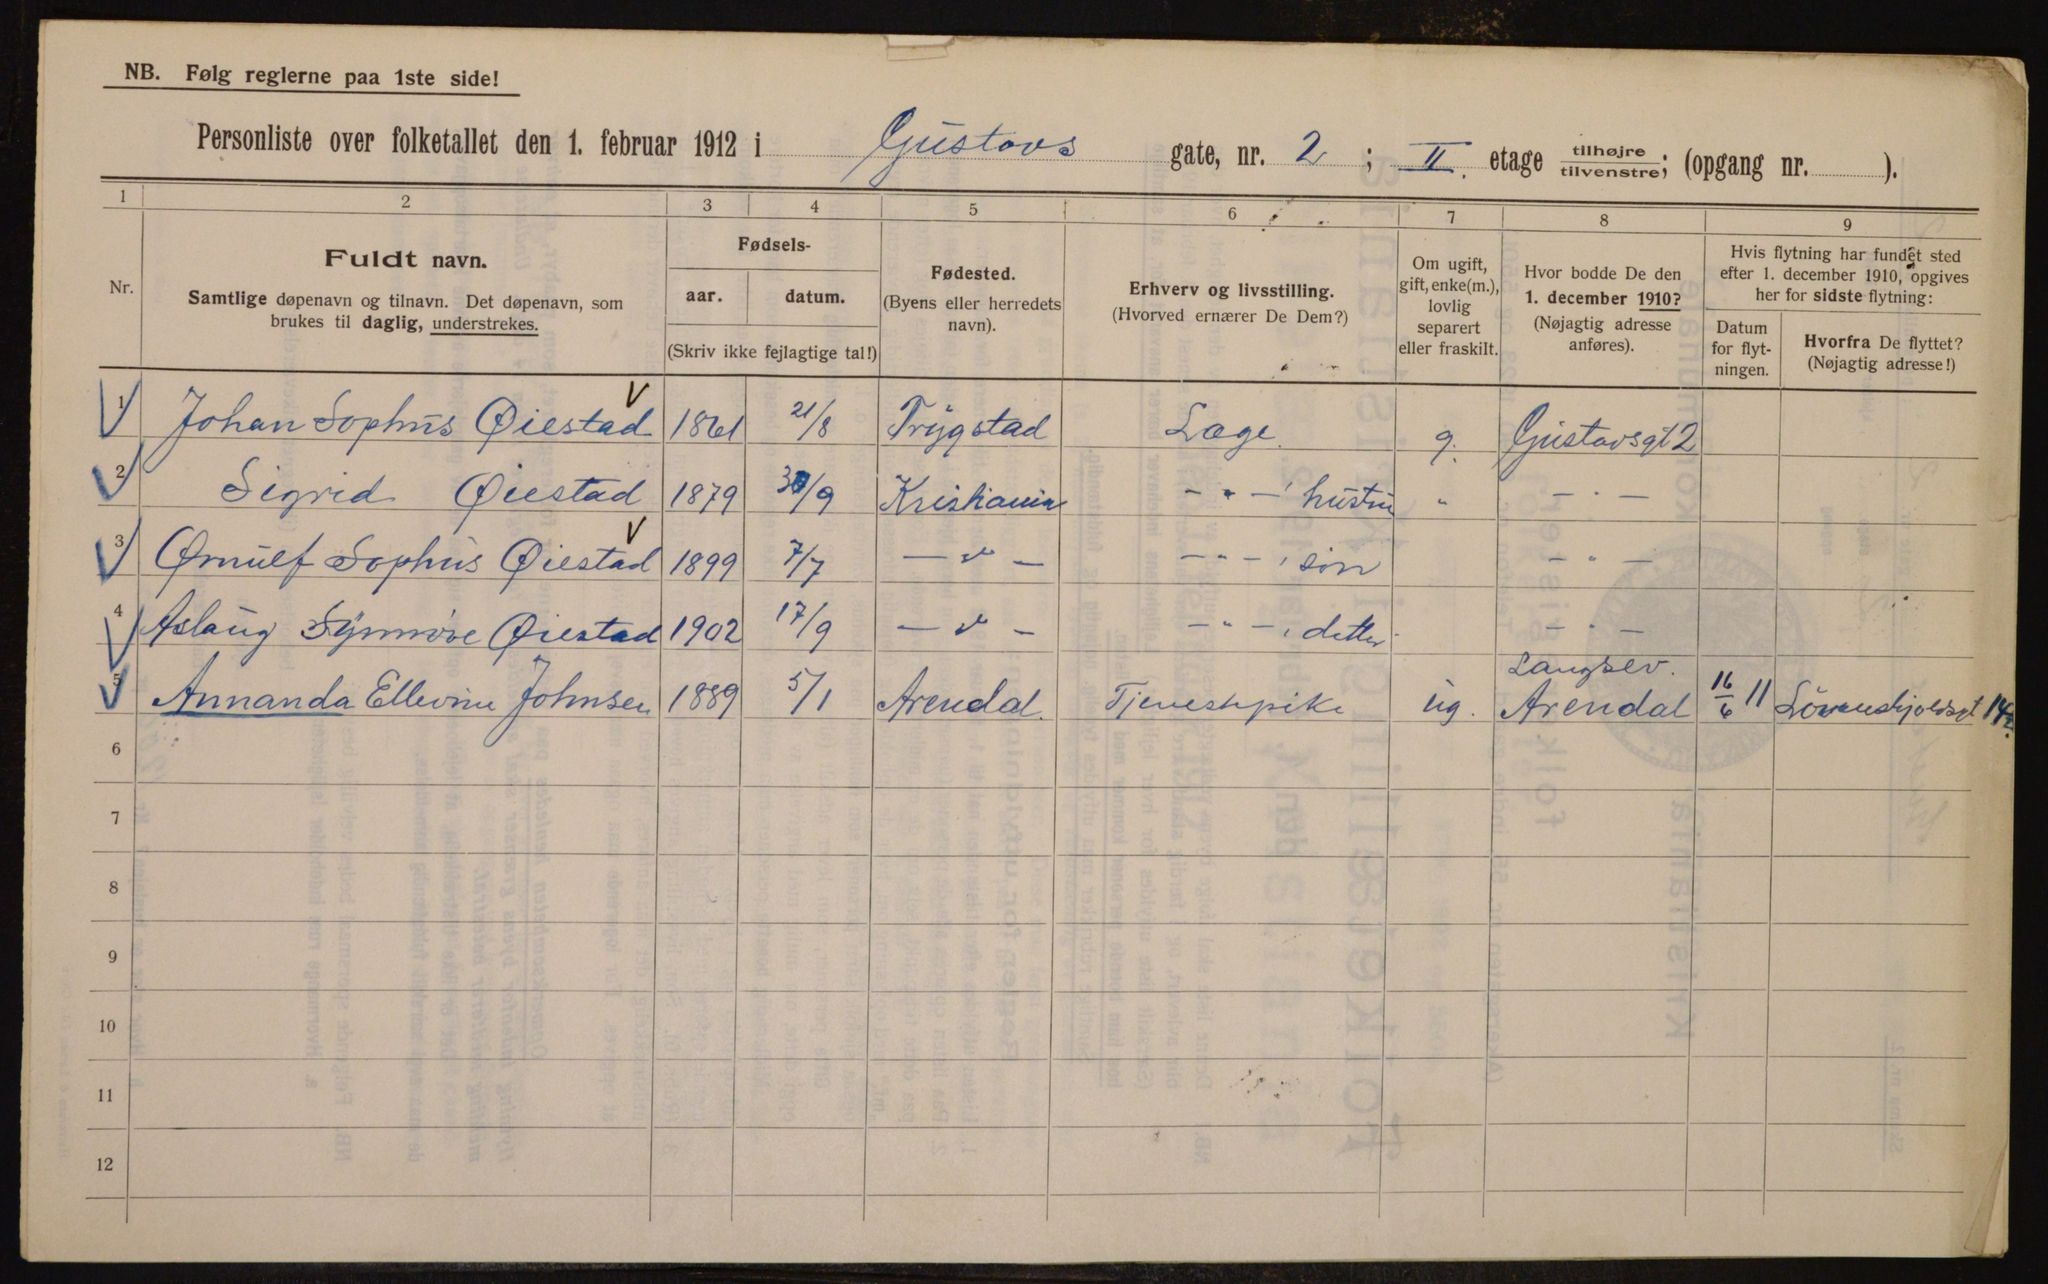 NB. Følg reglerne paa 1ste side!
Personliste over folketallet den 1. februar 1912 i Gustavs gate, nr. 2 ; II. etage tilhøjre/tilvenstre; (opgang nr. ).
1 2 3 4 5 6 7 8 9
Nr.
Fuldt navn.
Samtlige døpenavn og tilnavn. Det døpenavn, som
brukes til daglig, understrekes.
Fødsels-
aar. datum.
(Skriv ikke fejlagtige tal!)
Fødested.
(Byens eller herredets
navn).
Erhverv og livsstilling.
(Hvorved ernærer De Dem?)
Om ugift,
gift, enke(m.),
lovlig
separert
eller fraskilt.
Hvor bodde De den
1. december 1910?
(Nøjagtig adresse
anføres).
Hvis flytning har fundet sted
efter 1. december 1910, opgives
her for sidste flytning:
Datum
for flyt-
ningen.
Hvorfra De flyttet?
(Nøjagtig adresse!)
1 Johan Sophus Øiestad 1861 21/8 Trygstad Læge g. Gustavsgt 2
2 Sigrid Øiestad 1879 30/9 Kristiania — " — hustru " — " —
3 Ørnulf Sophus Øiestad 1899 7/7 — " — — " — , søn — " —
4 Aslaug Synnøve Øiestad 1902 17/9 — " — — " — , datter — " —
5 Annanda Ellevine Johnsen 1889 5/1 Arendal. Tjenestpike ug. Langsev. Arendal 16/6 11 Løvenskjoldsgt
6
7
8
9
10
11
12